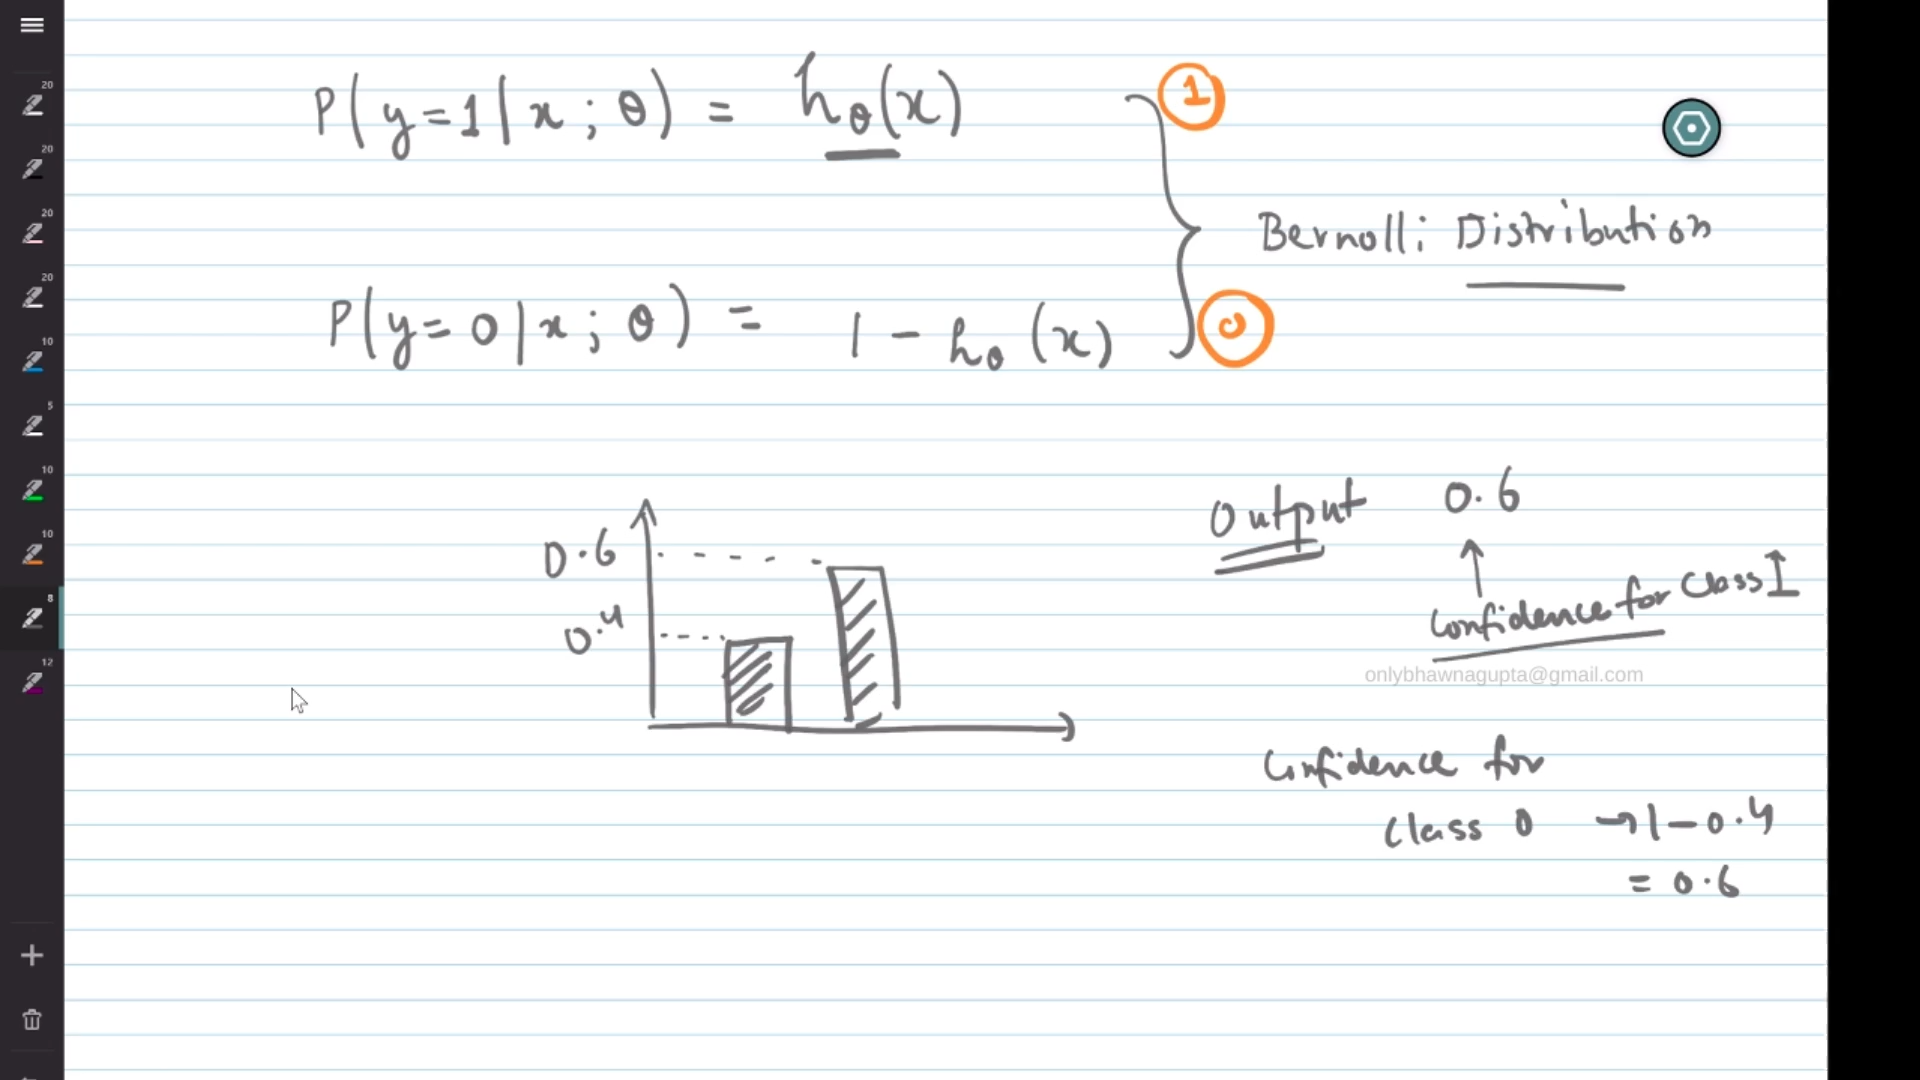 20
20
20
20
10
5
10
10
8
12
P(y=1|x;θ) = hθ(x)
1
Bernolli Distribution
P(y=0|x;θ) = 1 - hθ(x)
0
Output 0.6
0.6
0.4
Confidence for Class I
onlybhawnagupta@gmail.com
Confidence for
class 0 → 1-0.4
= 0.6